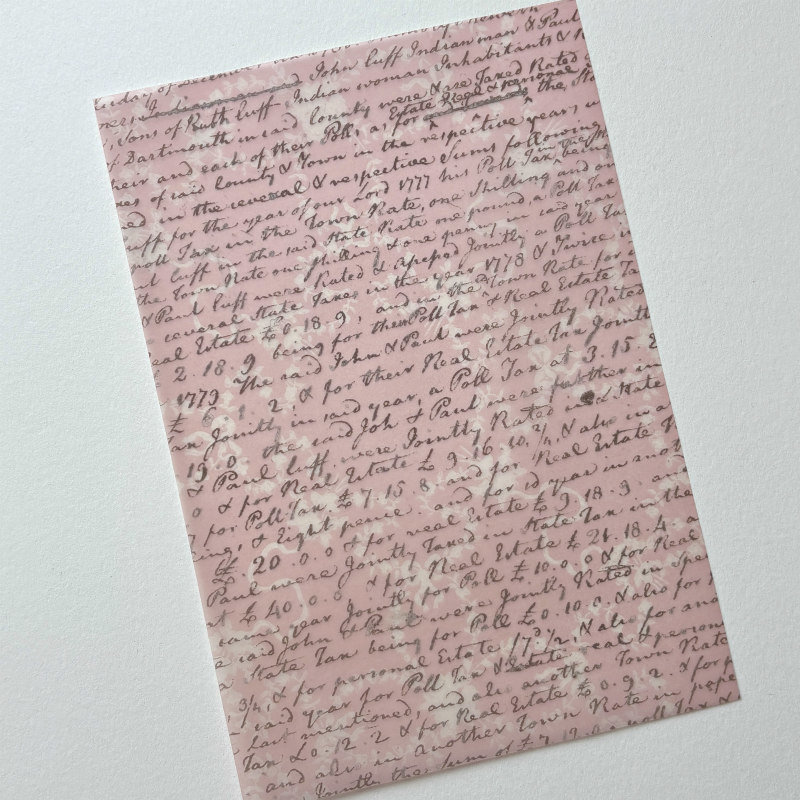 uesday of December
overs Indian man and John Cuff Indian man & Paul
, Sons of Ruth Cuff Indian woman Inhabitants &
f Dartmouth in said County were & are Taxed Rated
Estate Real & Personal
heir and each of their Polls as for the, the
xes of said County & Town in the respective years
ed in the several & respective Sums following
uff for the year of our Lord 1777 his Poll Tax being
in the
poll Tax in the Town Rate, one shilling and
ul Cuff in the said State Rate one pound, a Poll Tax
the Town Rate one shilling & one penny in said year
& Paul Cuff were Rated & Jointly a Poll Tax
several State Taxes in the year 1778 & Twice in
eal Estate £0.18.9, and in the Town Rate for
£ 2.18.9 being for their Poll Tax & Real Estate Ta
1779 The said John & Paul were Jointly Rated
£ 6.1.2, & for their Real Estate Tax Jointly
ax Jointly in said year, a Poll Tax at 3.15.
19.0 the said Joh & Paul were further in
& Paul Cuff were Jointly Rated in a State
0 & for Real Estate £ 9.16.10.2/4, & also in a
7 for Poll Tax. £ 7.15.8 and for Real Estate
ings, & Eight pence and for sd year in anot
£ 20.0.0 & for real Estate £ 9.18.3. and
Paul were Jointly Taxed in State Tax in the
at £ 40.0.0 & for Real Estate £ 21.18.4.
same year Jointly for Poll £ 10.0.0 & for Real
e said John & Paul were Jointly Rated in Spe
a State Tax being for Poll £0.10.0. & also for
3/4, & for personal Estate 17 1/2, & also for ano
said year for Poll Tax & Estate real & persona
Last mentioned, and also another Town Rate
Tax £0.12.2 & for Real Estate £0.9.2. & for p
and also in another Town Rate in pape
Jointly the Sum of £7.19 a Poll Tax &